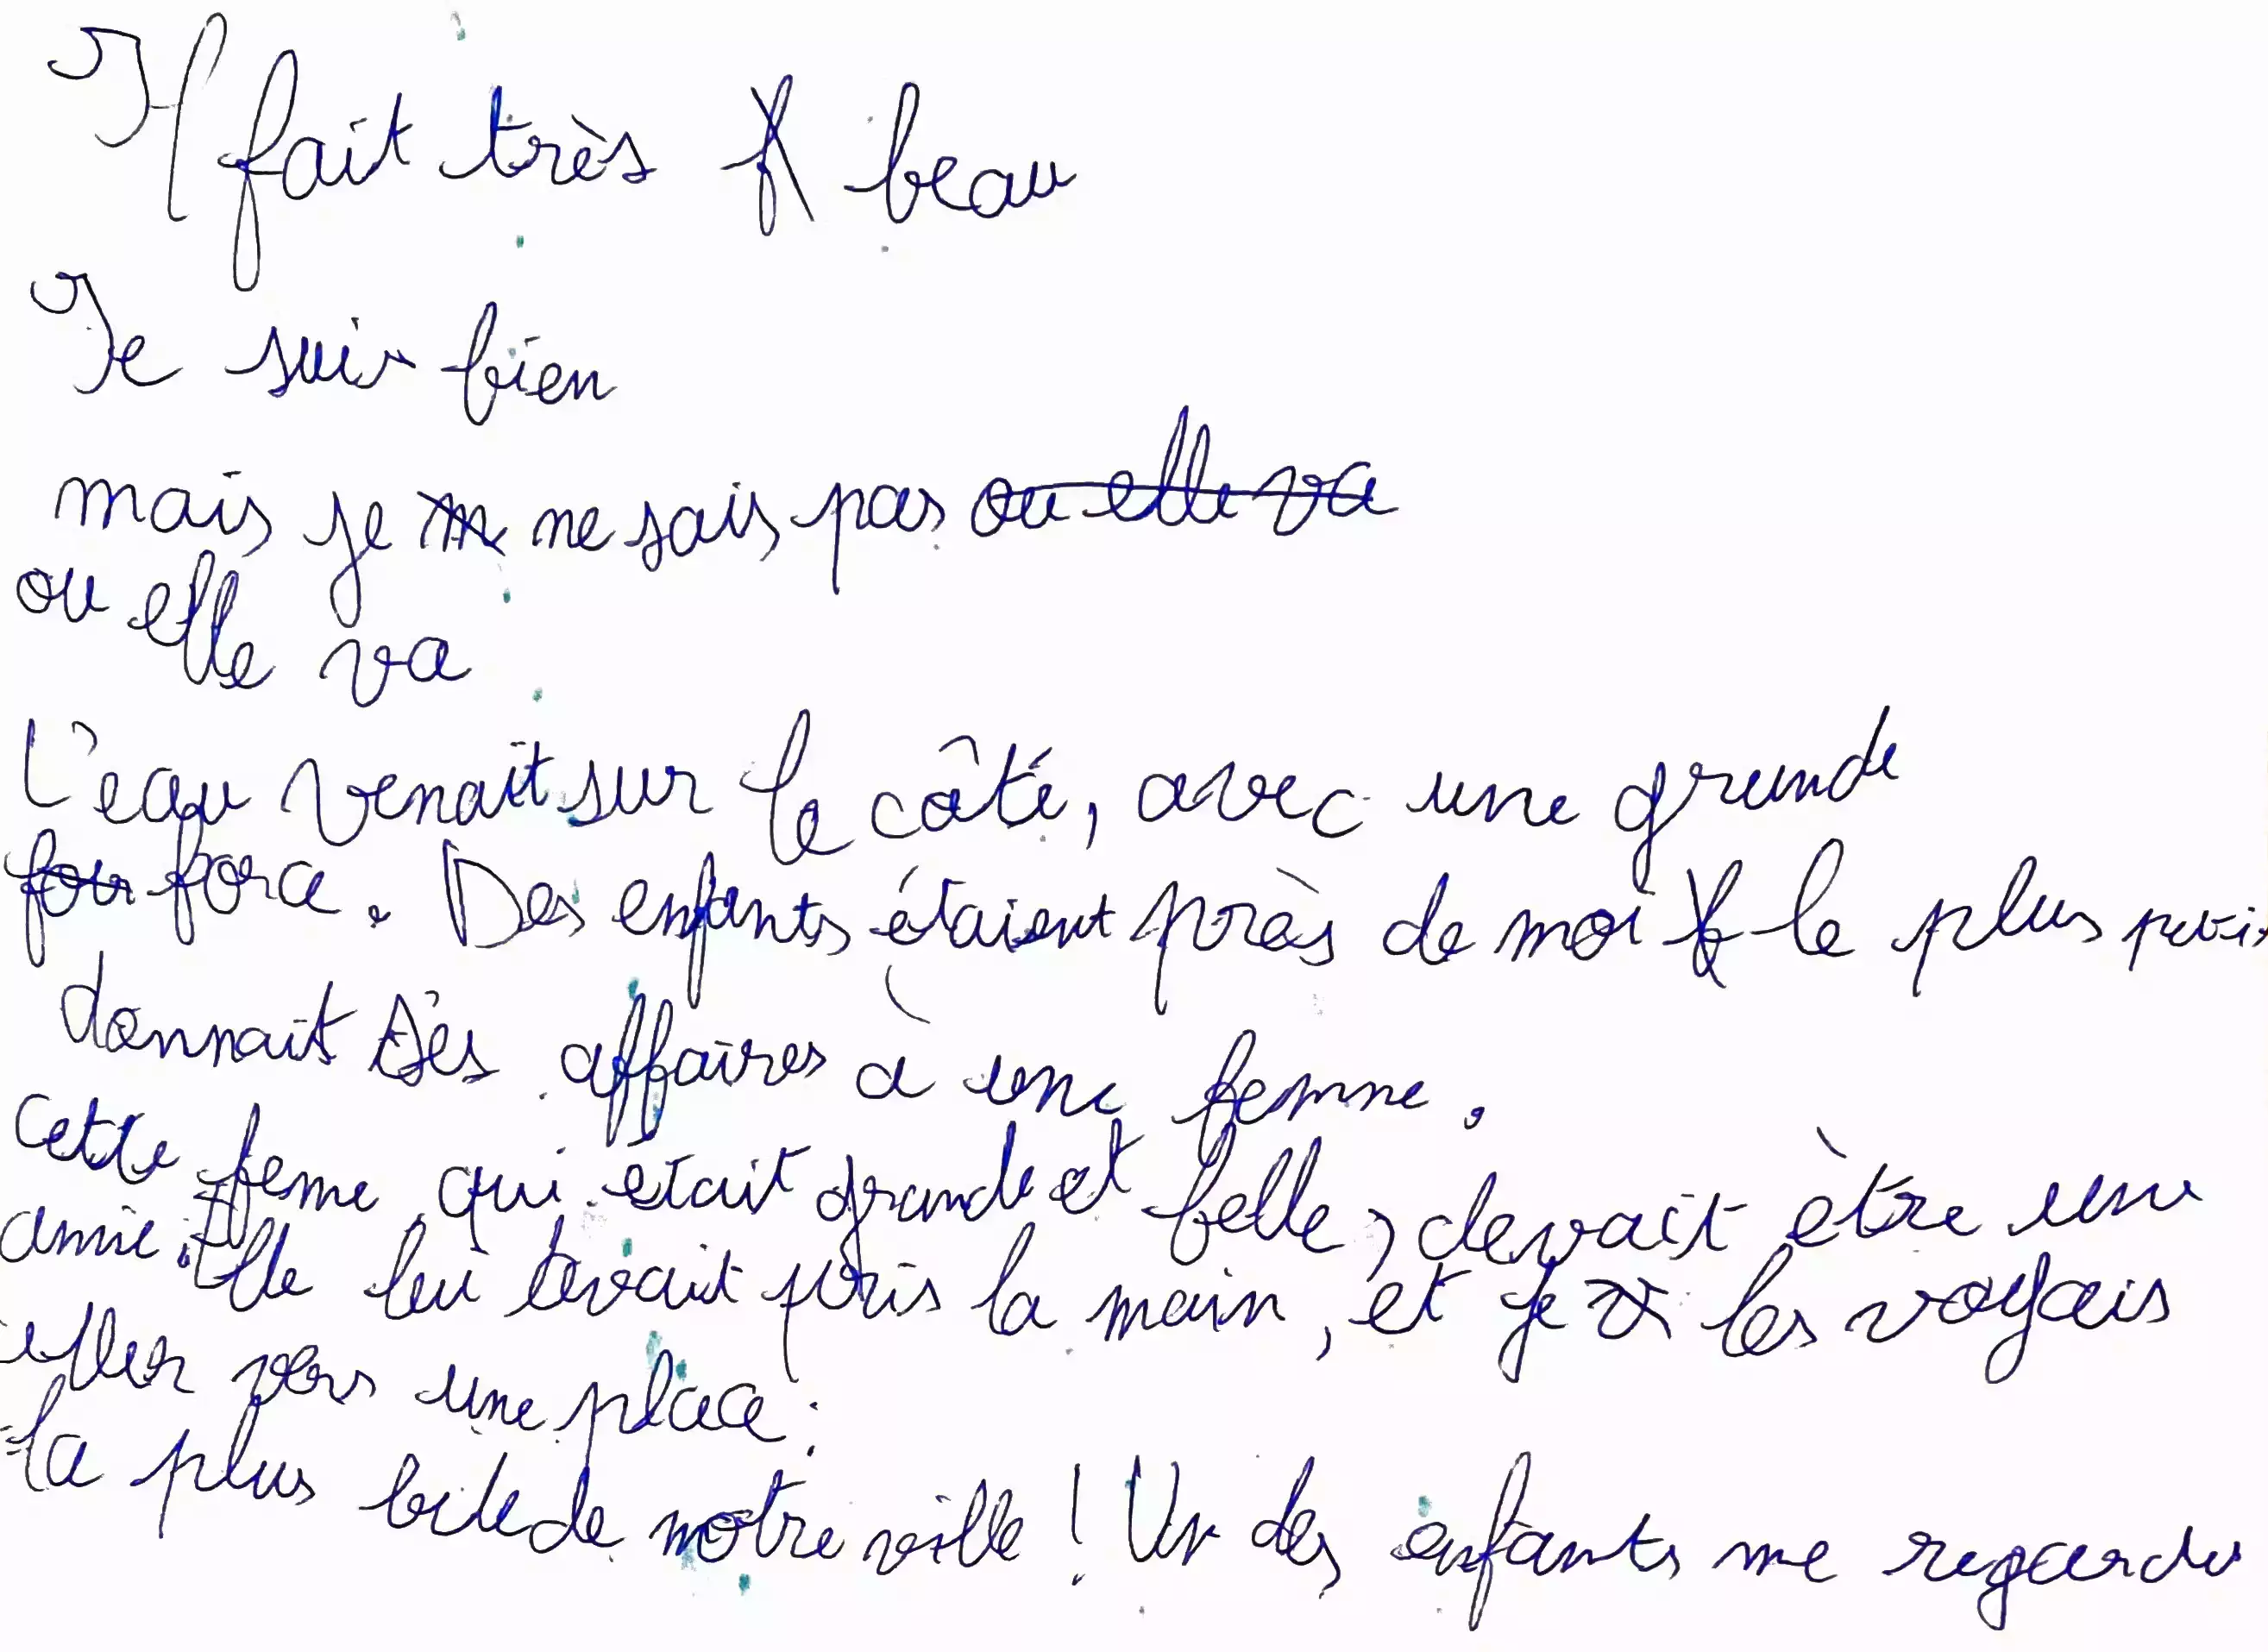 Il fait très beau
Je suis bien
mais je ne sais pas ou elle va
ou elle va
L'eau venait sur le côté, avec une grande
force. Des enfants étaient près de moi le plus
donnait ses affaires à une femme.
Cette femme qui était grande et belle, devait être une
amie. Elle lui levait pris la main, et je les voyais
aller vers une place :
la plus belle de notre ville ! Un des enfants me regarda